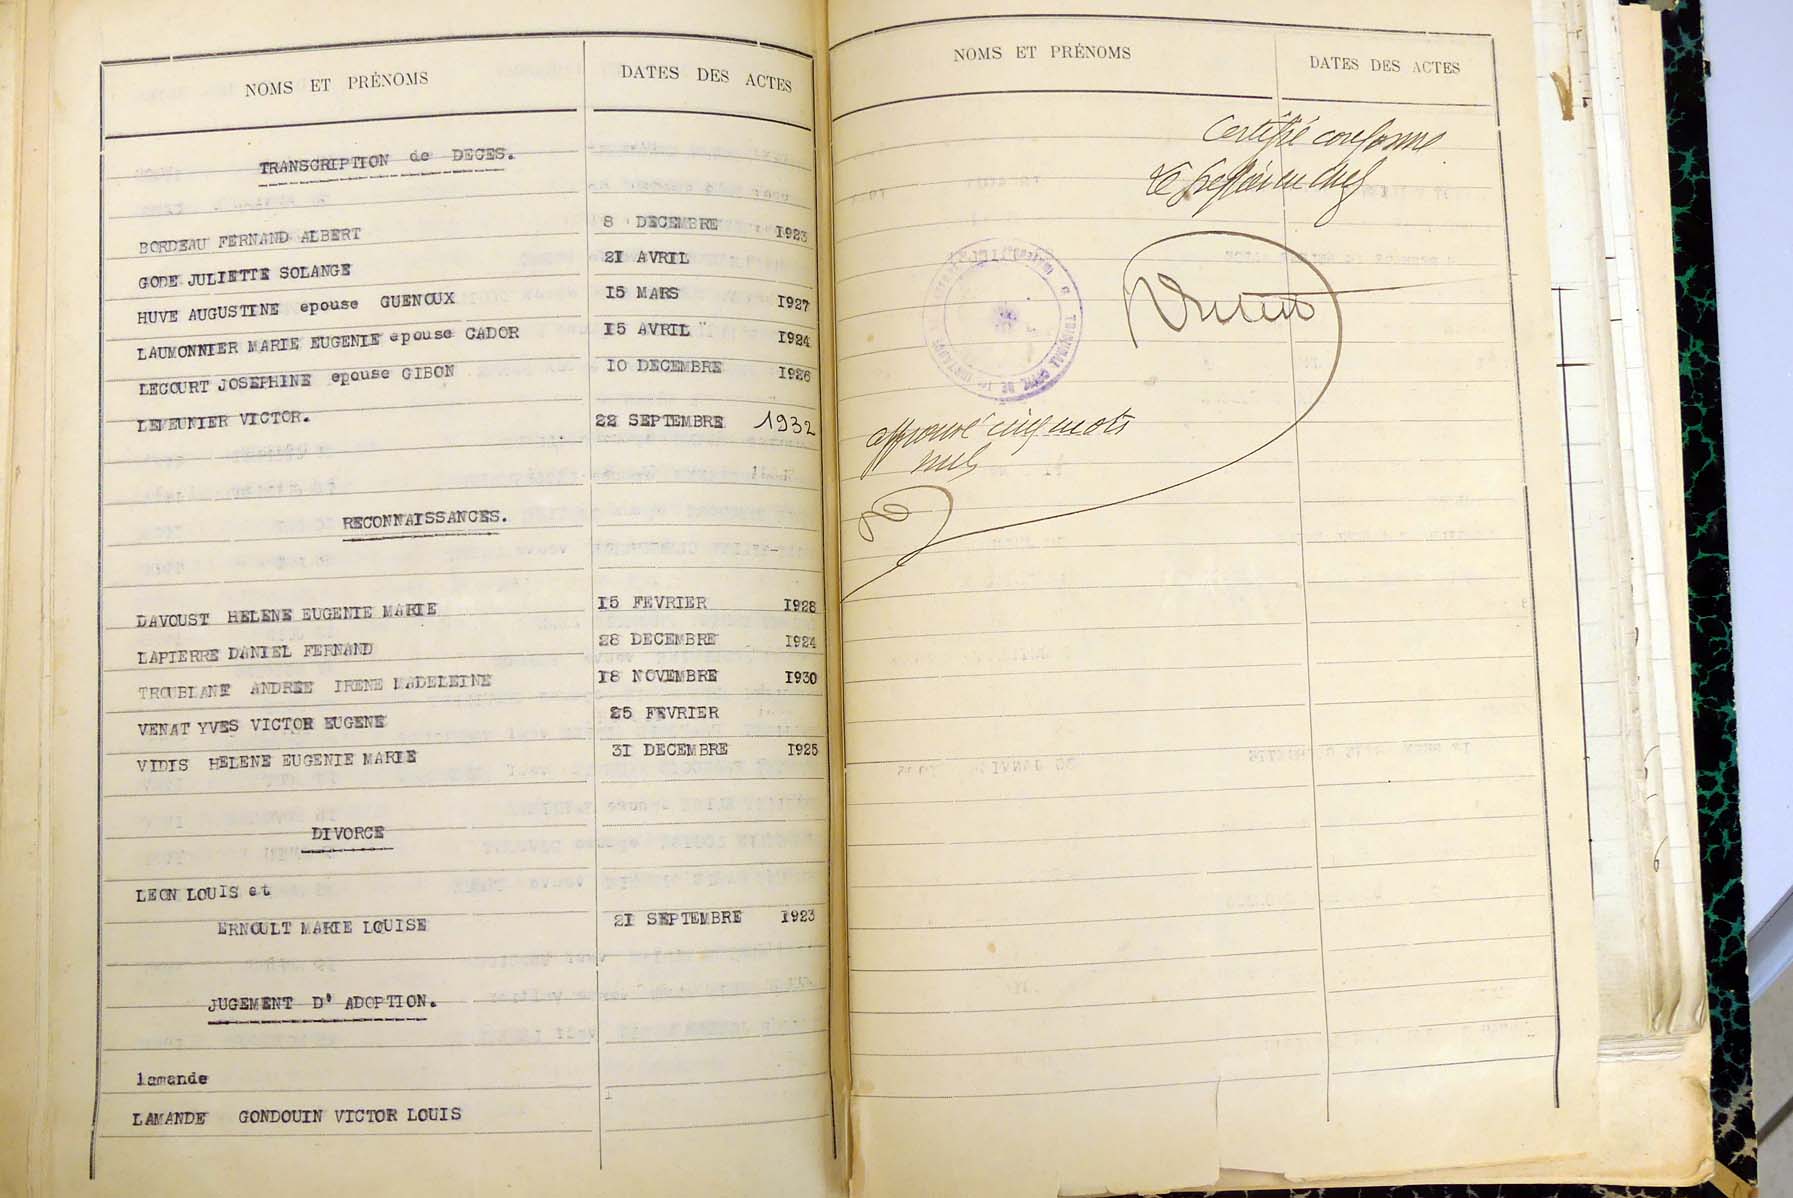 NOMS ET PRÉNOMS DATES DES ACTES
TRANSCRIPTION de DECES.
BORDEAU FERNAND ALBERT 8 DECEMBRE 1923
GODE JULIETTE SOLANGE 21 AVRIL
HUVE AUGUSTINE epouse GUENOUX 15 MARS 1927
LAUMONNIER MARIE EUGENIE epouse CADOR 15 AVRIL 1924
LECOURT JOSEPHINE epouse GIBON 10 DECEMBRE 1926
LEMEUNIER VICTOR. 22 SEPTEMBRE 1932
RECONNAISSANCES.
DAVOUST HELENE EUGENIE MARIE 15 FEVRIER 1928
LAPIERRE DANIEL FERNAND 28 DECEMBRE 1924
TROUBLANE ANDREE IRENE MADELEINE 18 NOVEMBRE 1930
VENAT YVES VICTOR EUGENE 25 FEVRIER
VIDIS HELENE EUGENIE MARIE 31 DECEMBRE 1925
DIVORCE
LEON LOUIS et
ERNOULT MARIE LOUISE 21 SEPTEMBRE 1923
JUGEMENT D' ADOPTION.
lamande
LAMANDE GONDOUIN VICTOR LOUIS
NOMS ET PRÉNOMS DATES DES ACTES
Certifié conforme
Le greffier en chef
TRIBUNAL CIVIL DE
approuvé cinq mots
nuls